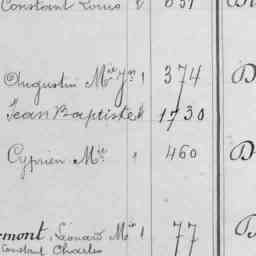 Constant Louis
Augustin Mie Jn 1 374 D
Jean Baptiste 1730
Cyprien Mie 1 460 D
mont, Léonard Mie 1 77
Constant Charles